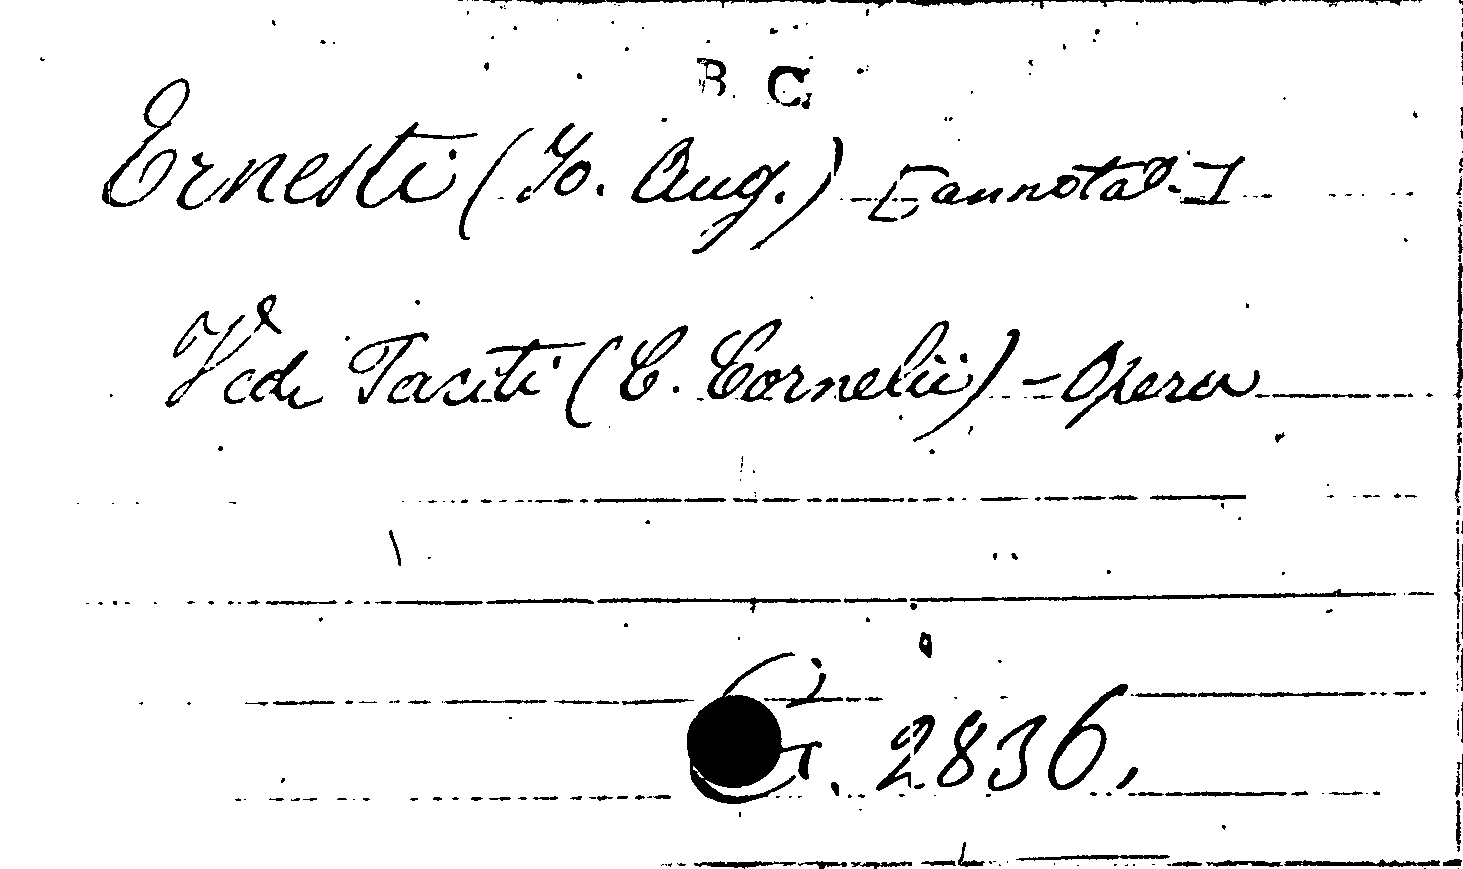 B. C.
Ernesti (Jo. Aug.) [annotat.]
Vedi Taciti (C. Cornelii) - Opera
G. 2836.